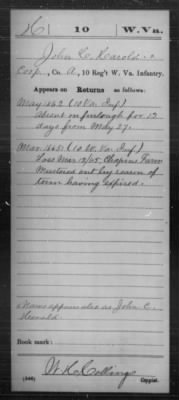 H | 10 | W. Va.
John C. Harold
Corp., Co. A, 10 Reg't W. Va. Infantry.
Appears on Returns as follows:
May 1862 (10 Va. Inf.)
absent on furlough for 12
days from May 27.
Mar. 1865 (10 W. Va. Inf.)
Loss Mar. 12/65 Chapins Farm
Mustered out by reason of
term having expired.
Name appears also as John C.
Book mark:
W. H. Collings
Copyist.